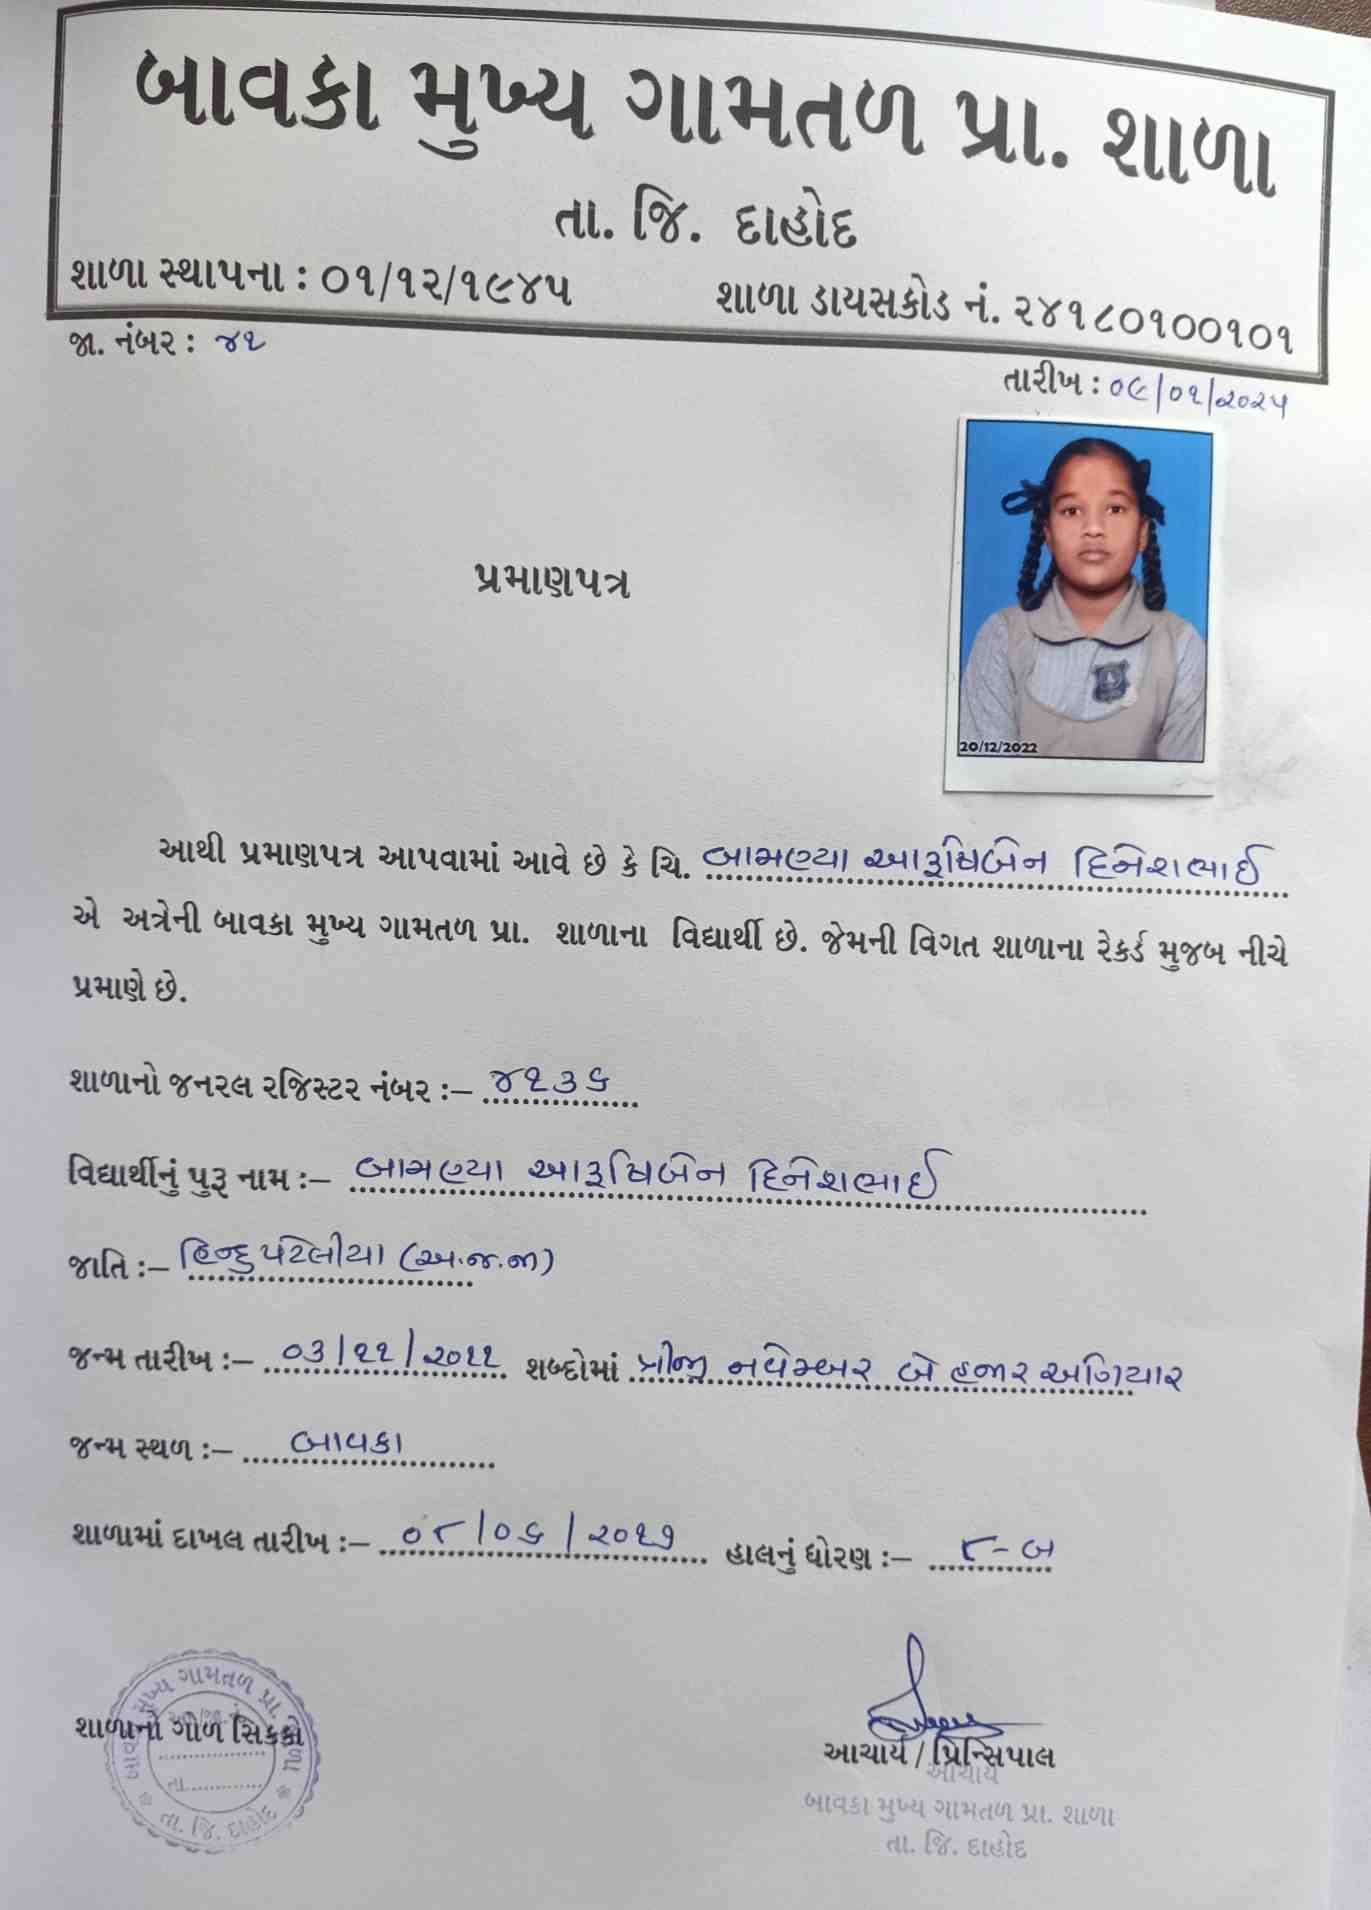 બાવકા મુખ્ય ગામતળ પ્રા. શાળા
તા. જિ. દાહોદ
શાળા સ્થાપના : ૦૧/૧૨/૧૯૪૫ શાળા ડાયસકોડ નં. ૨૪૧૮૦૧૦૦૧૦૧
જા. નંબર : ૪૧
તારીખ : ૦૯/૦૧/૨૦૨૫
20/12/2022
પ્રમાણપત્ર
આથી પ્રમાણપત્ર આપવામાં આવે છે કે ચિ. બામણ્યા આરૂષિબેન દિનેશભાઈ
એ અત્રેની બાવકા મુખ્ય ગામતળ પ્રા. શાળાના વિદ્યાર્થી છે. જેમની વિગત શાળાના રેકર્ડ મુજબ નીચે
પ્રમાણે છે.
શાળાનો જનરલ રજિસ્ટર નંબર :– ૪૧૩૬
વિદ્યાર્થીનું પુરૂ નામ :– બામણ્યા આરૂષિબેન દિનેશભાઈ
જાતિ :– હિન્દુ પટેલીયા (અ.જ.જા)
જન્મ તારીખ :– ૦૩/૧૧/૨૦૧૧ શબ્દોમાં ત્રીજી નવેમ્બર બે હજાર અગિયાર
જન્મ સ્થળ :– બાવકા
શાળામાં દાખલ તારીખ :– ૦૮/૦૬/૨૦૧૭ હાલનું ધોરણ :– ૮-બ
શાળાનો ગોળ સિક્કો
મુખ્ય ગામતળ પ્રા.
તા.
તા. જિ. દાહોદ
આચાર્ય / પ્રિન્સિપાલ
આચાર્ય
બાવકા મુખ્ય ગામતળ પ્રા. શાળા
તા. જિ. દાહોદ